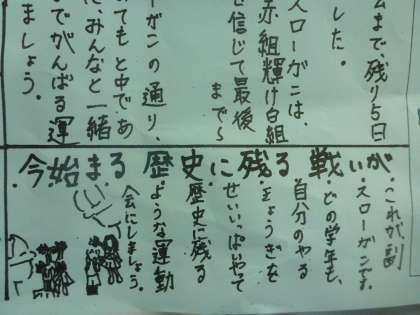 まで、残り5日
した。
スローガンは、
赤組輝け白組
信じて最後
まで〜
ーガンの通り、
てもと中であ
にみんなと一緒
までがんばる運
ましょう。
今始まる歴史に残る戦いが
・これが、副
スローガンです。
・どの学年も、
自分のやる
・きょうぎを
せいいっぱいやって
・歴史に残る
ような運動
会にしましょう。